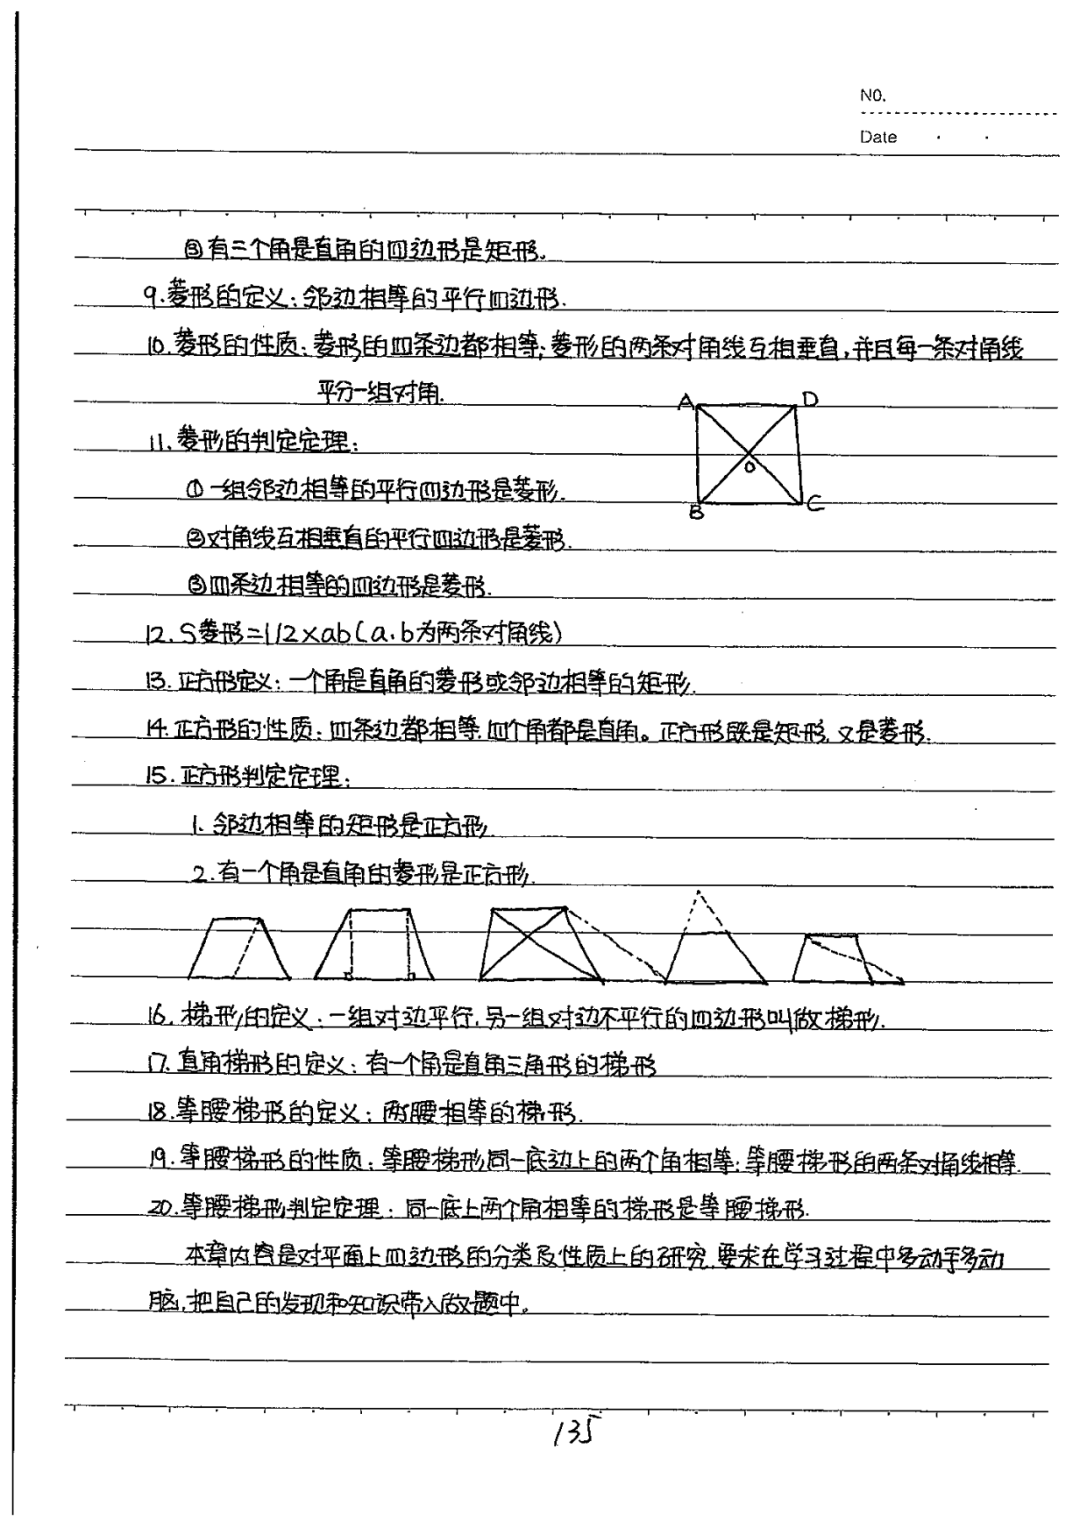 NO.
Date
③有三个角是直角的四边形是矩形.
9.菱形的定义:邻边相等的平行四边形.
10.菱形的性质:菱形的四条边都相等;菱形的两条对角线互相垂直,并且每一条对角线
平分一组对角.
A D
11.菱形的判定定理:
O
①一组邻边相等的平行四边形是菱形.
B C
②对角线互相垂直的平行四边形是菱形.
③四条边相等的四边形是菱形.
12.S菱形=1/2×ab(a.b为两条对角线)
13.正方形定义:一个角是直角的菱形或邻边相等的矩形.
14.正方形的性质:四条边都相等,四个角都是直角。正方形既是矩形,又是菱形.
15.正方形判定定理:
1.邻边相等的矩形是正方形
2.有一个角是直角的菱形是正方形.
16.梯形的定义:一组对边平行,另一组对边不平行的四边形叫做梯形.
17.直角梯形的定义:有一个角是直角三角形的梯形
18.等腰梯形的定义:两腰相等的梯形.
19.等腰梯形的性质:等腰梯形同一底边上的两个角相等;等腰梯形的两条对角线相等.
20.等腰梯形判定定理:同一底上两个角相等的梯形是等腰梯形.
本章内容是对平面上四边形的分类及性质上的研究,要求在学习过程中多动手多动
脑,把自己的发现和知识带入做题中。
135